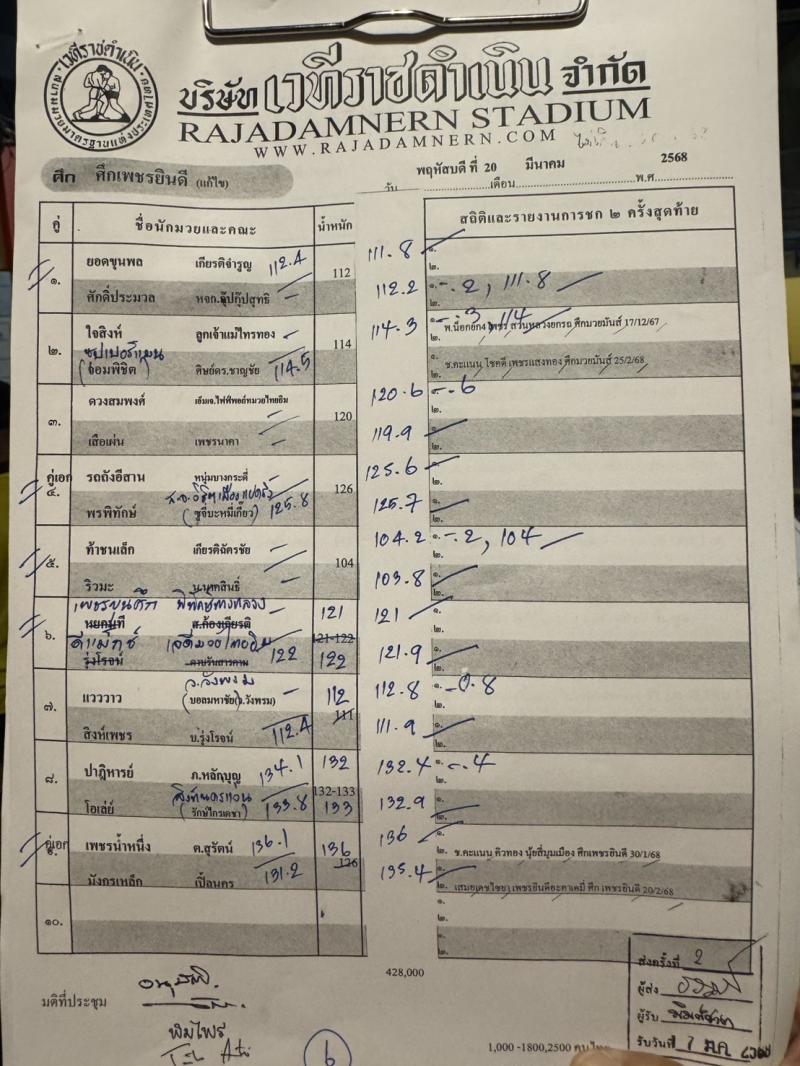 เวทีราชดำเนิน
บริษัท เวทีราชดำเนิน จำกัด
RAJADAMNERN STADIUM
WWW.RAJADAMNERN.COM
ศึก ศึกเพชรยินดี (แก้ไข)
วัน พฤหัสบดี ที่ 20 เดือน มีนาคม พ.ศ. 2568
คู่ ชื่อนักมวยและคณะ น้ำหนัก สถิติและรายงานการชก ๒ ครั้งสุดท้าย
๑. ยอดขุนพล เกียรติจำรูญ 112.4 112 111.8 ๑.
๒.
ศักดิ์ประมวล หจก.จุ๊ปกุ๊ปสุทธิ 112.2 ๑. -.2, 111.8
๒.
๒. ใจสิงห์ ลูกเจ้าแม่ไทรทอง 114 114.3 ๑. -.3, 114
๒. พ.น็อกยก4 เพชร สวนหลวงยกรถ ศึกมวยมันส์ 17/12/67
ซุปเปอร์แมน
(จ่อมพิชิต) ศิษย์ดร.ชาญชัย 114.5 ๑. ช.คะแนน โชคดี เพชรแสงทอง ศึกมวยมันส์ 25/2/68
๒.
๓. ดวงสมพงศ์ 120 120.6 ๑. -.6
๒.
เสือเผ่น เพชรนาคา 119.9 ๑.
๒.
คู่เอก ๔. รถถังอีสาน หนุ่มบางกระดี่ 126 125.6 ๑.
๒.
พรพิทักษ์ (ชูจี๊บะหมี่เกี๊ยว) 125.8 125.7 ๑.
๒.
๕. ท้าชนเล็ก เกียรติฉัตรชัย 104 104.2 ๑. -.2, 104
๒.
ริวมะ 103.8 ๑.
๒.
๖. เพชรขุนศึก 121 121 ๑.
ส.ก้องเกียรติ ๒.
ดีแม็กซ์ 121-122
รุ่งโรจน์ 122 122 121.9 ๑.
๒.
๗. แวววาว ว.วังพรม (บอลมหาชัย(ว.วังพรม) 112 112.8 ๑. -0.8
111 ๒.
สิงห์เพชร บ.รุ่งโรจน์ 112.4 111.9 ๑.
๒.
๘. ปาฏิหารย์ ภ.หลักบุญ 134.1 132 132.4 ๑. -.4
132-133 ๒.
โอเล่ย์ (รักษ์ไกรเดชา) 133.8 133 132.9 ๑.
๒.
คู่เอก ๙. เพชรน้ำหนึ่ง ต.สุรัตน์ 136.1 136 136 ๑.
136 ๒. ช.คะแนน คิวทอง นุ้ยสี่มุมเมือง ศึกเพชรยินดี 30/1/68
มังกรเหล็ก เปี้ลนคร 131.2 135.4 ๑.
๒. เสมอ,เดชไชยา เพชรยินดีอะคาเดมี่ ศึก เพชรยินดี 20/2/68
๑๐. ๑.
๒.
๑.
๒.
428,000
มติที่ประชุม
พิมไพร
6
1,000 -1800,2500 คนไทย
ส่งครั้งที่ 2
ผู้ส่ง
ผู้รับ
รับวันที่ 7 มี.ค.